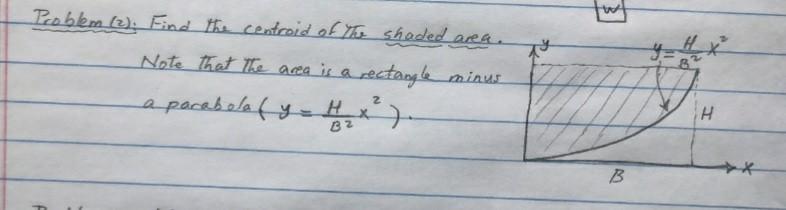 W
Problem (2): Find the centroid of the shaded area.
Note that the area is a rectangle minus
a parabola (y = H/B² x²).
y
y = H/B² x²
H
x
B